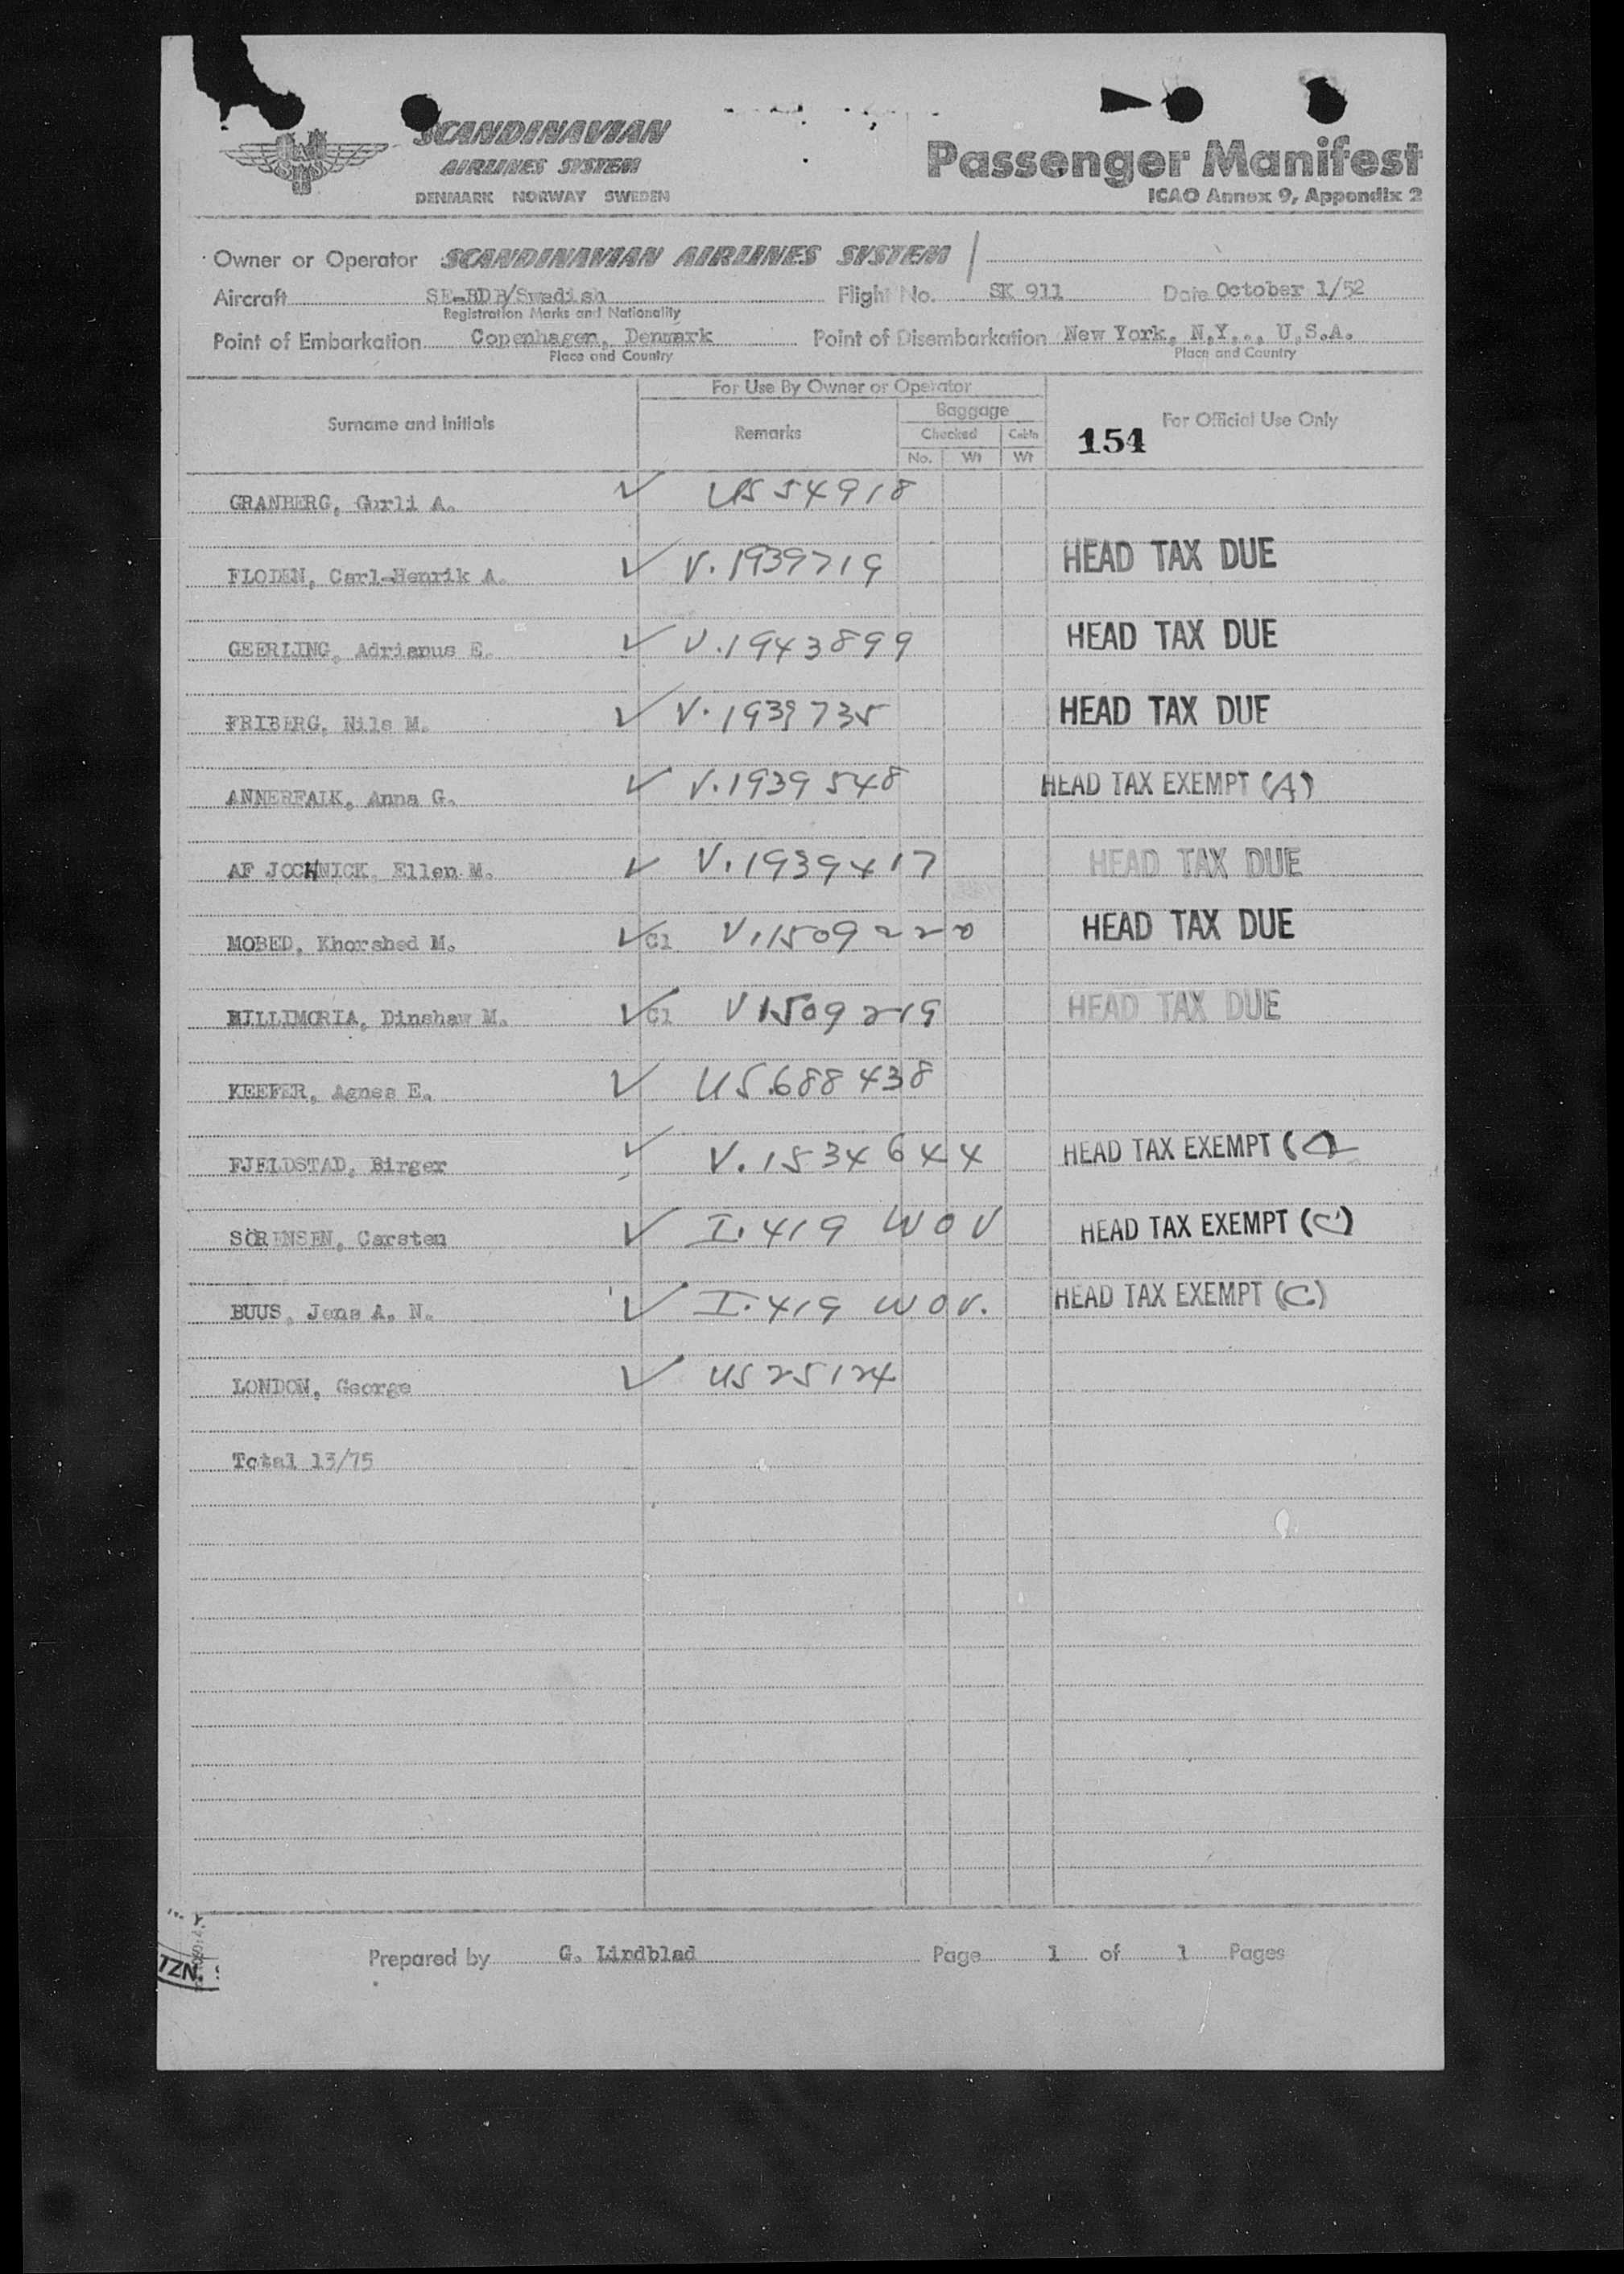 SCANDINAVIAN
AIRLINES SYSTEM
DENMARK NORWAY SWEDEN
Passenger Manifest
ICAO Annex 9, Appendix 2
Owner or Operator SCANDINAVIAN AIRLINES SYSTEM /
Aircraft SE-BDP/Swedish Flight No. SK 911 Date October 1/52
Registration Marks and Nationality
Point of Embarkation Copenhagen, Denmark Point of Disembarkation New York, N.Y.., U.S.A.
Place and Country Place and Country
For Use By Owner or Operator
Surname and Initials Remarks Baggage For Official Use Only
Checked Cabin
No. Wt Wt
154
GRANBERG, Gurli A. ✓ US 54918
FLODEN, Carl-Henrik A. ✓ V. 1939719 HEAD TAX DUE
GEERLING, Adrianus E. ✓ V.1943899 HEAD TAX DUE
FRIBERG, Nils M. ✓ V.1939735 HEAD TAX DUE
ANNERFALK, Anna G. ✓ V.1939548 HEAD TAX EXEMPT (A)
AF JOCHNICK, Ellen M. ✓ V.1939417 HEAD TAX DUE
MOBED, Khorshed M. ✓ C1 V.1509220 HEAD TAX DUE
BILLIMORIA, Dinshaw M. ✓ C1 V1509219 HEAD TAX DUE
KEEFER, Agnes E. ✓ US.688438
FJELDSTAD, Birger ✓ V.1534644 HEAD TAX EXEMPT
SÖRENSEN, Carsten ✓ I.419 WOV HEAD TAX EXEMPT (C)
BUUS, Jens A. N. ✓ I.419 WOV. HEAD TAX EXEMPT (C)
LONDON, George ✓ US 25124
Total 13/75
TZN.
Prepared by G. Lindblad Page 1 of 1 Pages